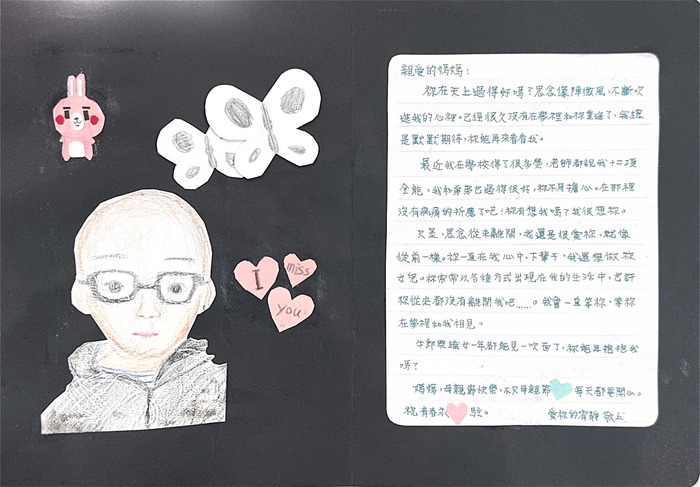 I
miss
you
親愛的媽媽：
祢在天上過得好嗎？思念像陣微風，不斷吹
進我的心裡。已經很久沒有在夢裡和祢重逢了，我總
是默默期待，祢能再來看看我。
最近我在學校得了很多獎，老師都說我十二項
全能，我和弟弟已過得很好，祢不用擔心。在那裡
沒有病痛的折磨了吧！祢有想我嗎？我很想祢。
只是，思念從未離開，我還是很愛祢，就像
從前一樣。祢一直在我心中，下輩子，我還想做祢
女兒。祢常常以各種方式出現在我的生活中，也許
祢從來都沒有離開我吧……。我會一直等祢，等祢
在夢裡和我相見。
牛郎與織女一年都能見一次面了，祢能再抱抱我
嗎？
媽媽，母親節快樂，不只母親節 每天都要開心。
祝 青春永 駐。 愛祢的 靜 敬上